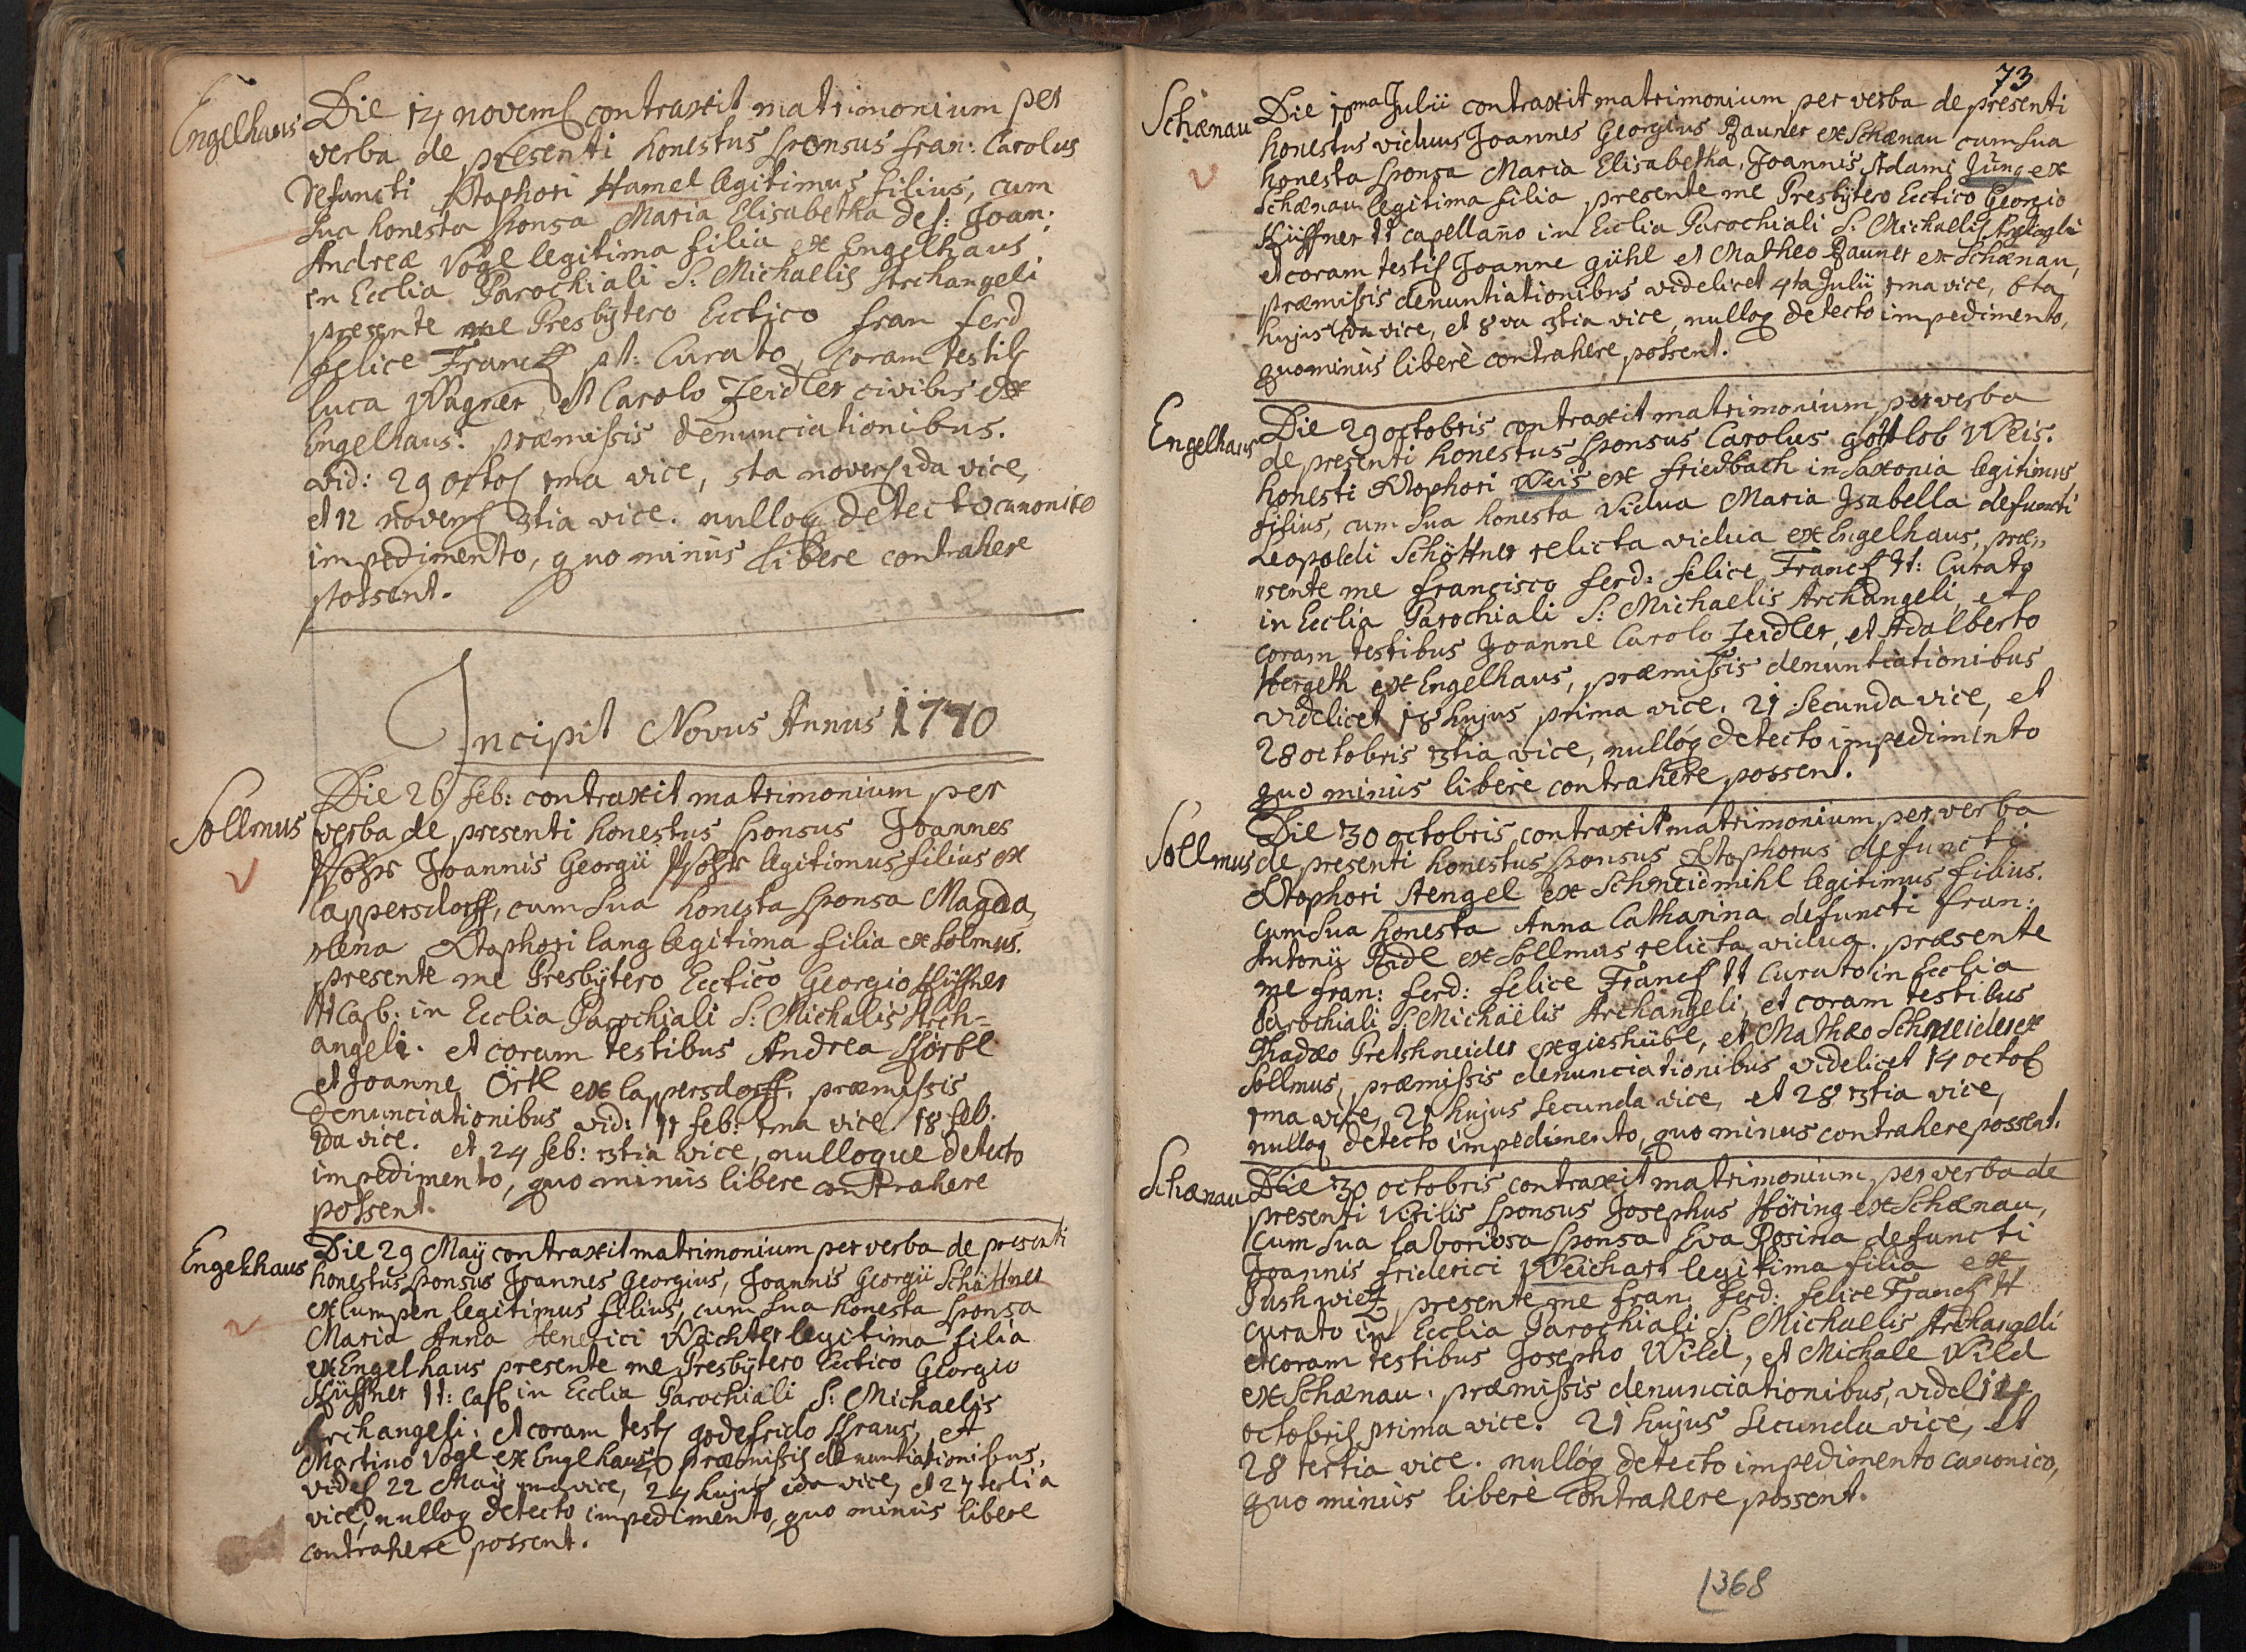 Engelhaus
Die 14 novem contraxit matrimonium per
verba de presenti honestus sponsus Fran: Carolus
defuncti Xtophori Hamel legitimus filius, cum
sua honesta sponsa Maria Elisabetha def: Joan:
Andreæ Vogl legitima filia ex Engelhaus
in Ecclia Parochiali S: Michaelis Archangeli
presente me Presbytero Ecctico Fran Ferd
Felice Franck pt: Curato, coram testib
Luca Wagner, et Carolo Zeidler civibus ex
Engelhaus: præmissis denunciationibus.
vid: 29 octob 1ma vice, 5ta novem 2da vice,
et 12 novem 3tia vice. nulloq detecto canonico
impedimento, quo minùs libere contrahere
possent.
Incipit Novus Annus 1770
Sollmus
Die 26 Feb: contraxit matrimonium per
verba de presenti honestus sponsus Joannes
Joannis Georgii legitimus filius ex
Lappersdorff, cum sua honesta sponsa Magda
lena Xtophori Lang legitima filia ex Solmus.
presente me Presbytero Ecctico Georgio Küffner
tt Cap: in Ecclia Parochiali S: Michalis Arch=
angeli. et coram testibus Andrea Körbl
et Joanne Örtl ex Lappersdorff. præmissis
denunciationibus vid: 11 Feb: 1ma vice. 18 Feb.
2da vice. et 24 Feb: 3tia vice, nulloque detecto
impedimento, quo minùs libere contrahere
possent.
Engelhaus
Die 29 Maÿ contraxit matrimonium per verba de presenti
honestus sponsus Joannes Georgius, Joannis Georgii Schöttner
ex Lumpen legitimus filius, cum sua honesta sponsa
Maria Anna Henerici Richter legitima filia
ex Engelhaus presente me Presbytero Ecctico Georgio
Küffner tt: Cap in Ecclia Parochiali S: Michaelis
Archangeli: et coram test godefrido Kraus, et
Martino Vogl ex Englhaus, præmissis denuntiationibus,
videl 22 Maÿ 1ma vice, 24 hujus 2da vice, et 27 tertia
vice, nulloq detecto impedimento, quo minùs libere
contrahere possent.
73
Schænau
Die 10ma Julii contraxit matrimonium per verba de presenti
honestus viduus Joannes Georgius Zauner ex Schænau cum sua
honesta sponsa Maria Elisabetha, Joannis Adami Jung ex
Schænau legitima filia presente me Presbytero Ecctico Georgio
Küffner tt capellano in Ecclia Parochiali S: Michaelis
et coram testib Joanne gühl et Matheo Zauner ex Schænau,
præmissis denuntiationibus videlicet 4ta Julii 1ma vice, 6ta
hujus 2da vice, et 8va 3tia vice, nulloq detecto impedimento,
quominùs liberè contrahere possent.
Engelhaus
Die 29 octobris contraxit matrimonium per verba
de presenti honestus sponsus Carolus gottlob Weis.
honesti Xtophori Weis ex Friedbach in Saxonia legitimus
filius, cum sua honesta vidua Maria Isabella defuncti
Leopoldi Schöttner relicta vidua ex Engelhaus, præ
sente me Francisco Ferd: Felice Franck tt: Curato
in Ecclia Parochiali S: Michaelis Archangeli, et
coram testibus Joanne Carolo Zeidler, et Adalberto
Hergeth ex Engelhaus, præmissis denuntiationibus
videlicet 18 hujus prima vice. 21 secunda vice, et
28 octobris 3tia vice, nulloq detecto impedimento
quo minùs liberè contrahere possent.
Sollmus
Die 30 octobris contraxit matrimonium per verba
de presenti honestus sponsus Xtophorus defuncti
Xtophori Stengel ex Schneidmihl legitimus filius.
cum sua honesta Anna Catharina defuncti Fran:
Antonii ex Sollmus relicta vidua. præsente
me Fran: Ferd: Felice Franck tt Curato in Ecclia
Parochiali S: Michaëlis Archangeli, et coram testibus
Thadæo Pretshneider ex gieshübl, et Mathæo Schneider ex
Sollmus, præmissis denunciationibus videlicet 14 octob
1ma vice, 21 hujus secunda vice, et 28 3tia vice,
nulloq detecto impedimento, quo minus contrahere possent.
Schænau
Die 30 octobris contraxit matrimonium per verba de
presenti Virilis sponsus Josephus Höring ex Schænau,
cum sua laboriosa sponsa Eva Rosina defuncti
Joannis Friderici Weichart legitima filia ex
presente me Fran: Ferd: Felice Franck tt
curato in Ecclia Parochiali S: Michaelis Archangeli
et coram testibus Josepho Wild, et Michale Wild
ex Schænau. præmissis denunciationibus, videl 14
octobris prima vice. 21 hujus secunda vice, et
28 tertia vice. nulloq detecto impedimento canonico,
quo minùs liberè contrahere possent.
1368